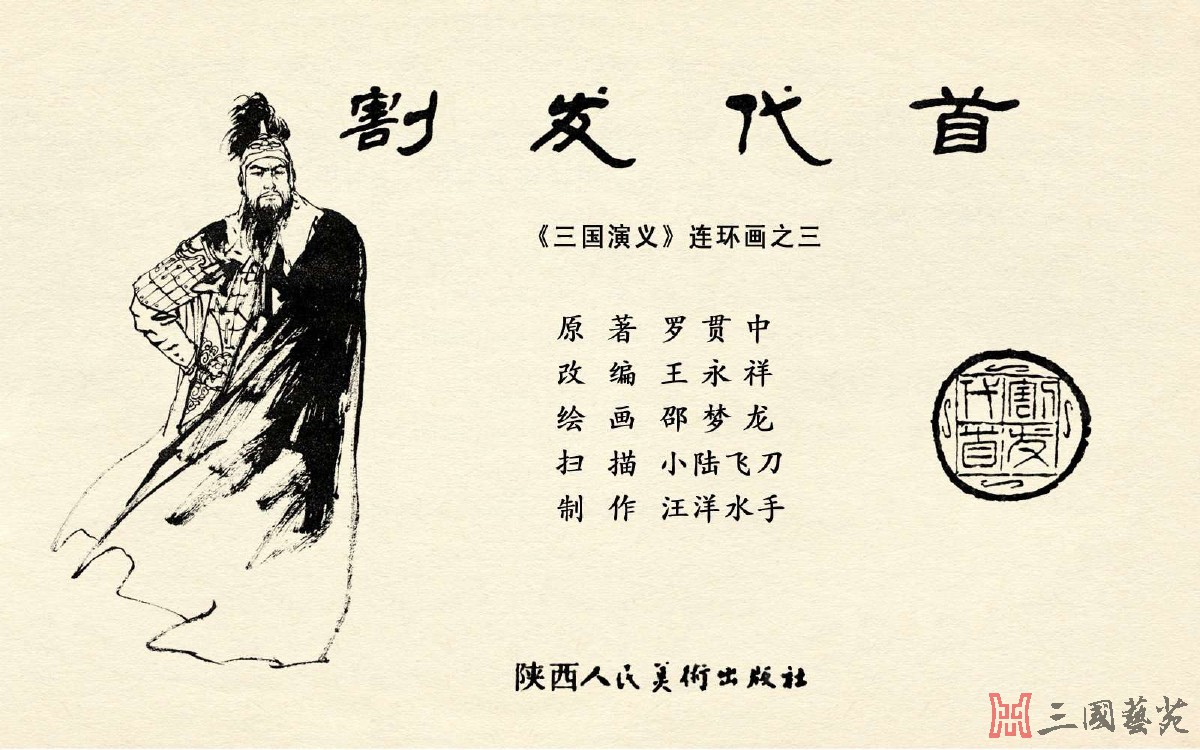 割发代首
《三国演义》连环画之三
原 著 罗贯中
改 编 王永祥
绘 画 邵梦龙
扫 描 小陆飞刀
制 作 汪洋水手
割发代首
陕西人民美術出版社
三國藝苑